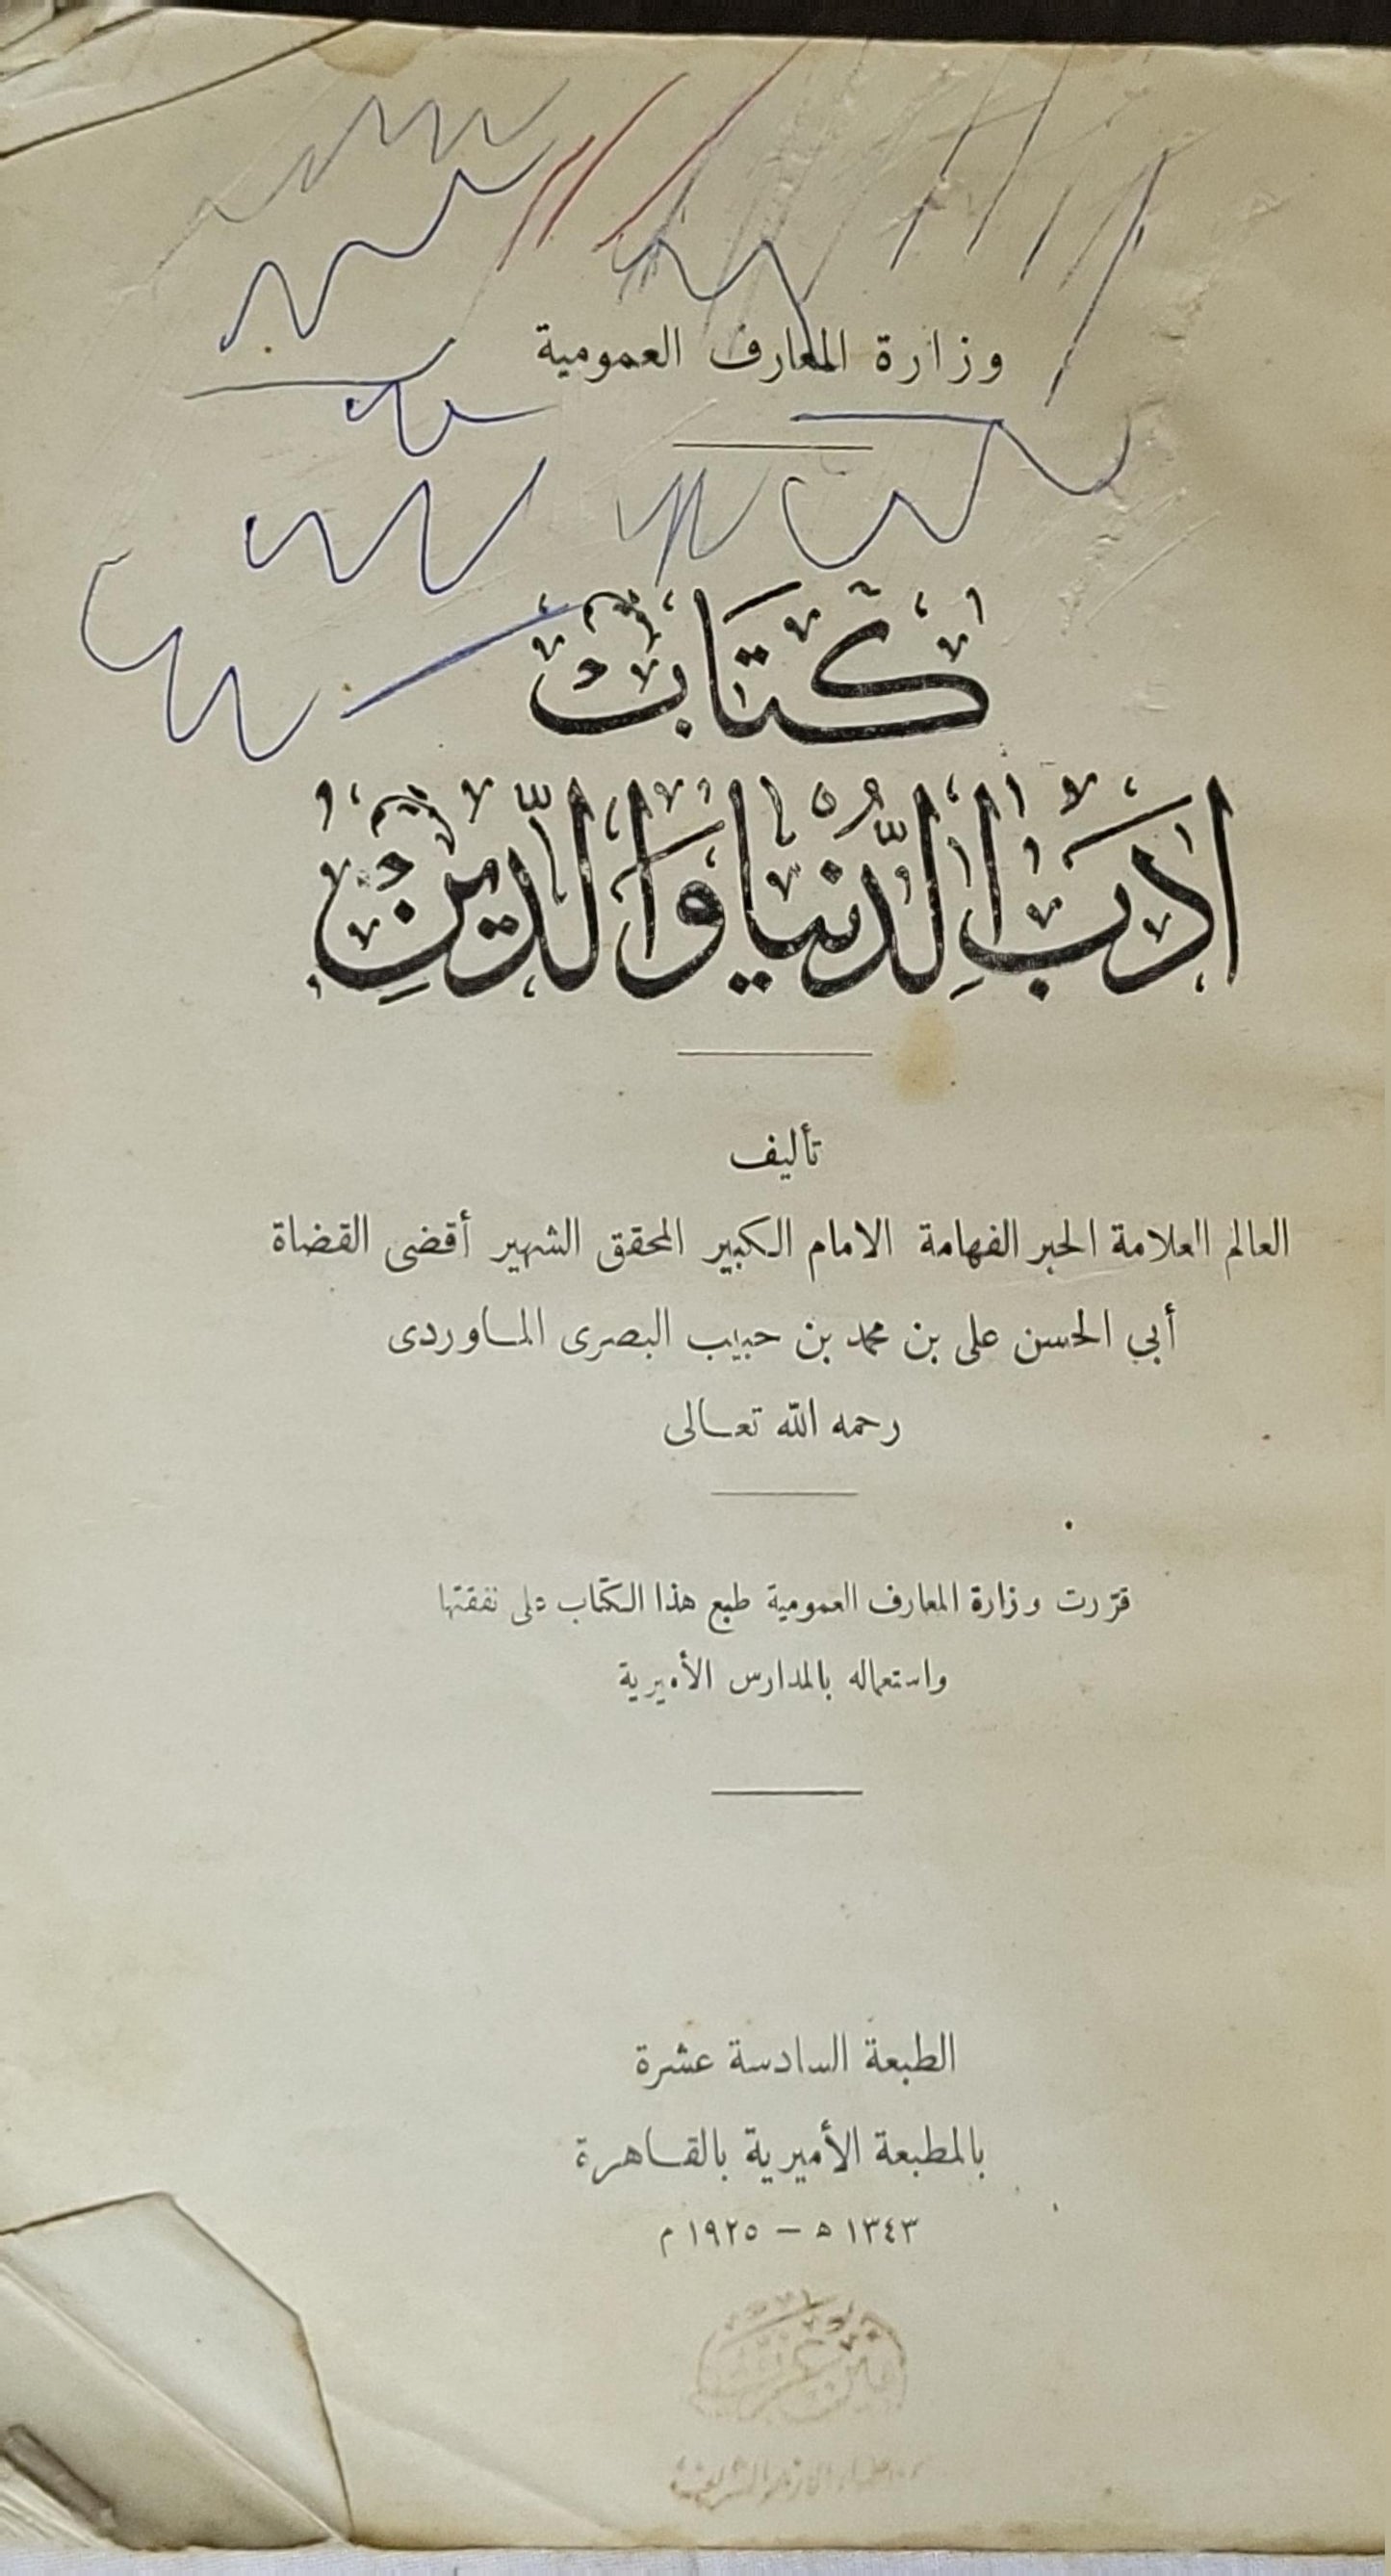 وزارة المعارف العمومية
كتاب
ادَب الدُّنيا وَالدِّينِ
تأليف
العالم العلامة الحبر الفهامة الامام الكبير المحقق الشهير أقضى القضاة
أبي الحسن على بن محمد بن حبيب البصرى الماوردى
رحمه الله تعالى
قرّرت وزارة المعارف العمومية طبع هذا الكتاب على نفقتها
واستعماله بالمدارس الأميرية
الطبعة السادسة عشرة
بالمطبعة الأميرية بالقاهرة
١٣٤٣ ه – ١٩٢٥ م